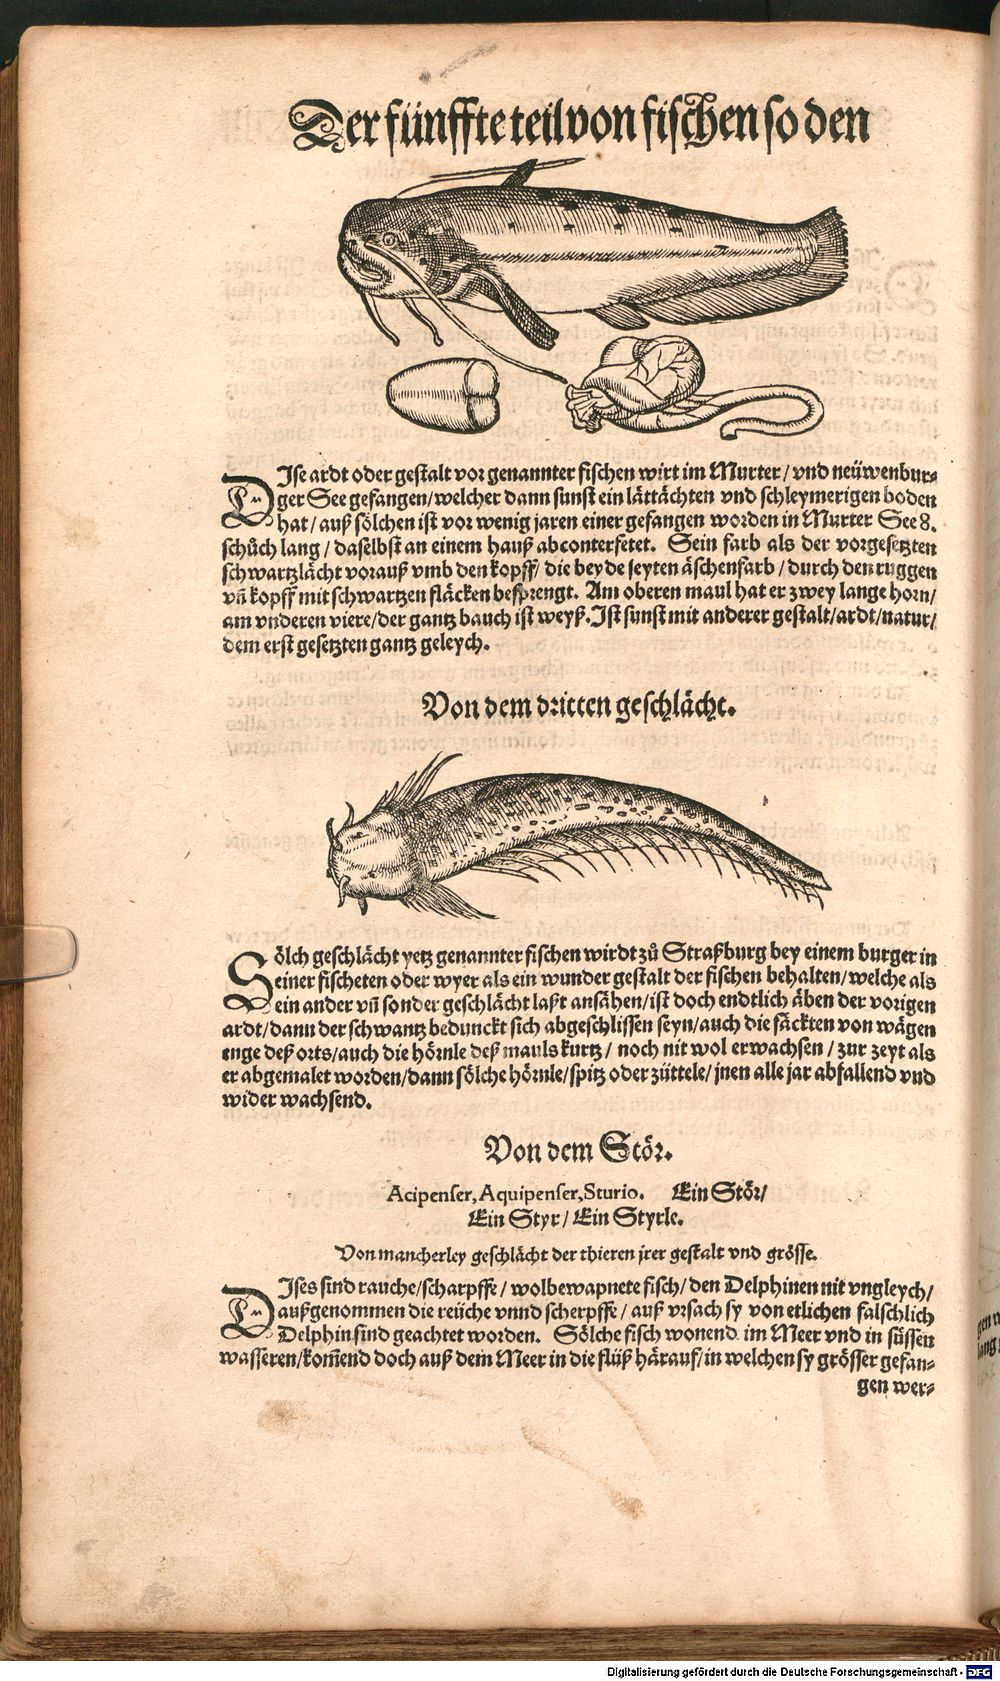 Der fünffte teil von fischen so den
DIse ardt oder gestalt vor genannter fischen wirt im Murter / vnd neüwenbur⸗
ger See gefangen/welcher dann sunst ein lättächten vnd schleymerigen boden
hat / auß sölchen ist vor wenig jaren einer gefangen worden in Murter See 8.
schůch lang / daselbst an einem hauß abconterfetet. Sein farb als der vorgesetzten
schwartzlächt vorauß vmb den kopff/ die beyde seyten äschenfarb / durch den ruggen
vñ kopff mit schwartzen fläcken besprengt. Am oberen maul hat er zwey lange horn/
am vnderen viere/der gantz bauch ist weyß. Ist sunst mit anderer gestalt/ardt/natur/
dem erst gesetzten gantz geleych.
Von dem dritten geschlächt.
Sölch geschlächt yetz genannter fischen wirdt zů Straßburg bey einem burger in
seiner fischeten oder wyer als ein wunder gestalt der fischen behalten/welche als
ein ander vñ sonder geschlächt laßt ansähen/ist doch endtlich äben der vorigen
ardt/dann der schwantz bedunckt sich abgeschlissen seyn/auch die fäckten von wägen
enge deß orts/auch die hörnle deß mauls kurtz / noch nit wol erwachsen / zur zeyt als
er abgemalet worden/dann sölche hörnle/spitz oder züttele/ jnen alle jar abfallend vnd
wider wachsend.
Von dem Stör.
Acipenser, Aquipenser, Sturio. Ein Stör/
Ein Styr/ Ein Styrle.
Von mancherley geschlächt der thieren jrer gestalt vnd grösse.
DIses sind rauche/scharpffe / wolbewapnete fisch/ den Delphinen nit vngleych/
außgenommen die reüche vnnd scherpffe / auß vrsach sy von etlichen falschlich
Delphin sind geachtet worden. Sölche fisch wonend im Meer vnd in süssen
wasseren/kom̃end doch auß dem Meer in die flüß härauf/in welchen sy grösser gefan⸗
gen wer⸗
Digitalisierung gefördert durch die Deutsche Forschungsgemeinschaft - DFG